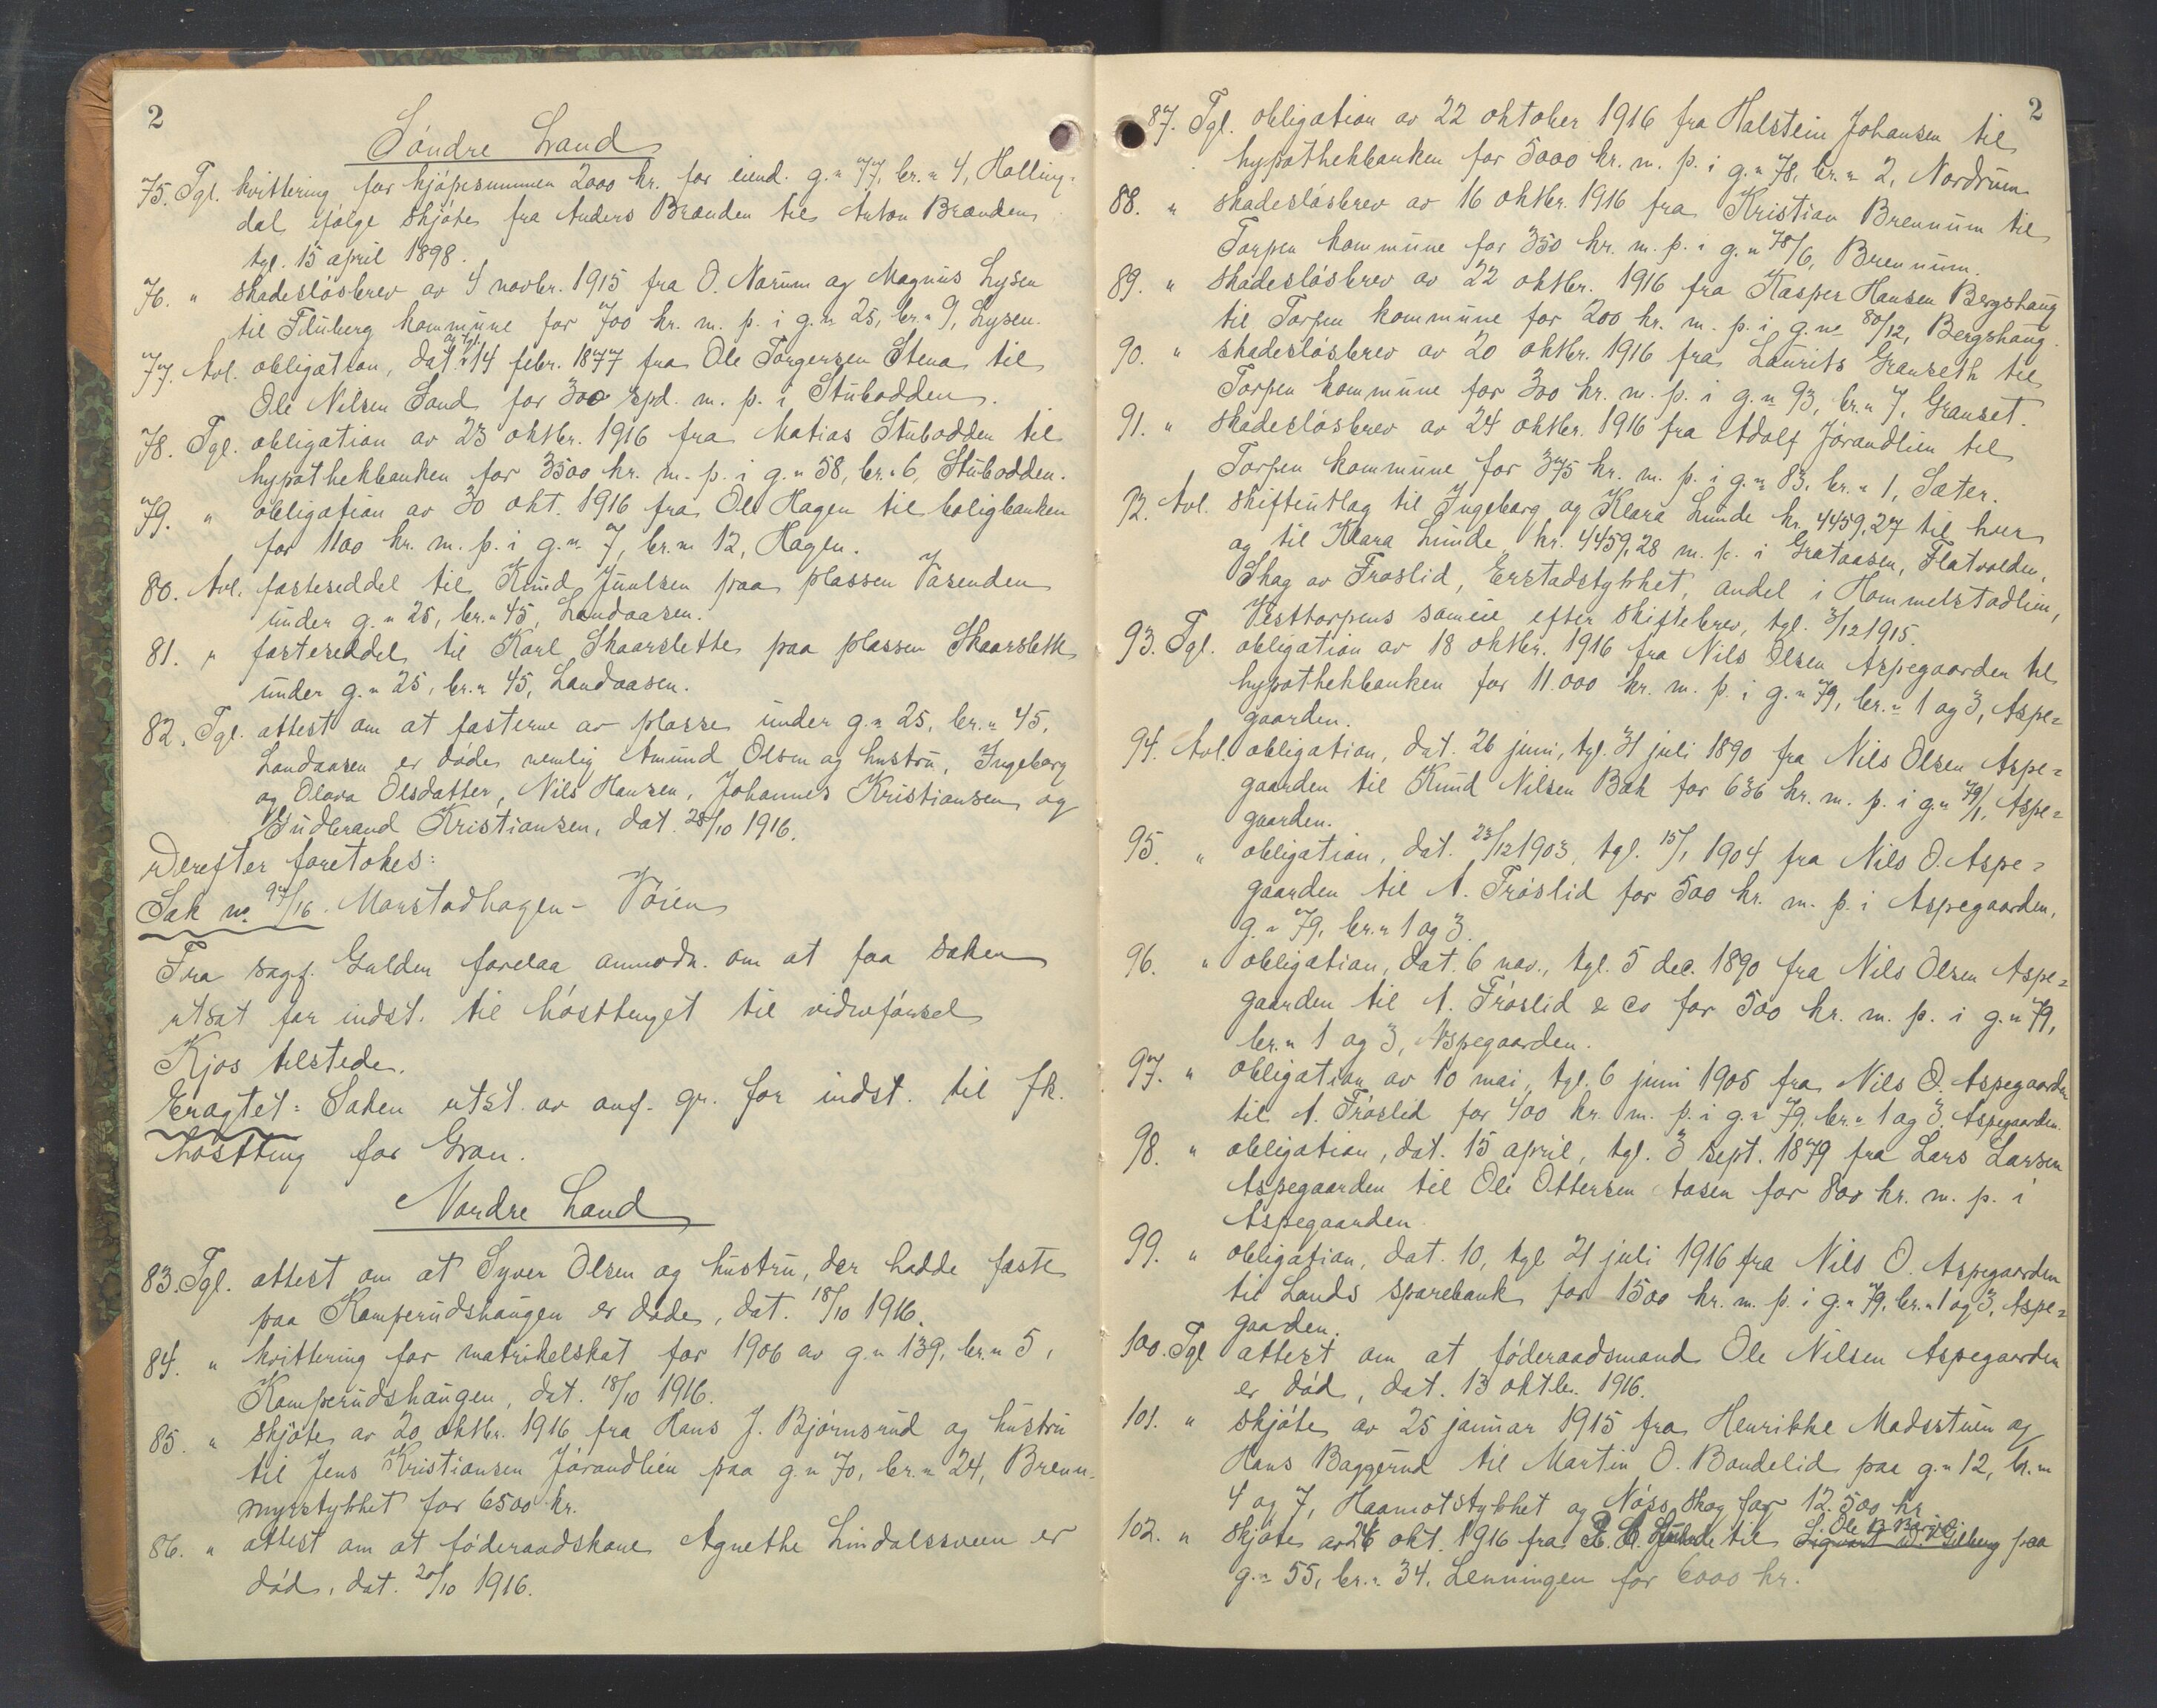 2
Söndre Land
75. Tgl. kvittering for kjöpesummen 2000 kr. for eiend. g.n 77, br.n 4, Holling-
dal ifölge skjöte fra Anders Brænden til Anton Brænden
tgl. 15 april 1898.
76. " skadeslösbrev av 4 novbr. 1915 fra O. Narum og Magnus Lysen
til Fluberg kommune for 700 kr. m. p. i g.n 25, br.n 9, Lysen.
77. Avl. obligation, dat. og tgl. 14 febr. 1877 fra Ole Torgersen Stena til
Ole Nilsen Sand for 300 spd. m. p. i Stubodden.
78. Tgl. obligation av 23 oktbr. 1916 fra Matias Stubodden til
hypothekbanken for 3500 kr. m. p. i g.n 58, br.n 6, Stubodden.
79. " obligation av 30 okt. 1916 fra Ole Hagen til boligbanken
for 1100 kr. m. p. i g.n 7, br.n 12, Hagen.
80. Avl. fæsteseddel til Knud Juulsen paa plassen Vasenden
under g.n 25, br.n 45, Landaasen.
81. " fæsteseddel til Karl Skaarslette paa plassen Skaarslette
under g.n 25, br.n 45, Landaasen.
82. Tgl. attest om at fæsterne av plasse under g.n 25, br.n 45,
Landaasen er döde nemlig Amund Olsen og hustru, Ingeborg
og Olava Olsdatter, Nils Hansen, Johannes Kristiansen og
Gudbrand Kristiansen, dat. 28/10 1916.
Derefter foretokes:
Sak no. 97/16. Marstadhagen - Vöien
Fra sagf. Gulden forelaa anmodn. om at faa saken
utsat for indst. til hösttinget til vidneförsel
Kjos tilstede.
Eragtet: Saken utst. av anf. gr. for indst. til fk.
höstting for Gran.
Nordre Land
83. Tgl. attest om at Syver Olsen og hustru, der hadde fæste
paa Kamperudshaugen er döde, dat. 18/10 1916.
84. " kvittering for matrikelskat for 1906 av g.n 139, br.n 5,
Kamperudshaugen, dat. 18/10 1916.
85. " skjöte av 20 oktbr. 1916 fra Hans J. Björnsrud og hustru
til Jens Kristiansen Jörandlien paa g.n 70, br.n 24, Brenn-
myrstykket for 6500 kr.
86. " attest om at föderaadskone Agnethe Lindalssveen er
död, dat. 20/10 1916.
2
87. Tgl. obligation av 22 oktober 1916 fra Halstein Johansen til
hypothekbanken for 5000 kr. m. p. i g.n 78, br.n 2, Nordrum.
88. " skadeslösbrev av 16 oktbr. 1916 fra Kristian Brennum til
Torpen kommune for 350 kr. m. p. i g.n 78/6, Brennum.
89. " skadeslösbrev av 22 oktbr. 1916 fra Kasper Hansen Bergshaug
til Torpen kommune for 200 kr. m. p. i g.no 80/12, Bergshaug.
90. " skadeslösbrev av 20 oktbr. 1916 fra Laurits Granseth til
Torpen kommune for 300 kr. m. p. i g.n 93, br.n 7, Granset.
91. " skadeslösbrev av 24 oktbr. 1916 fra Adolf Jörandlien til
Torpen kommune for 375 kr. m. p. i g.n 83, br.n 1, Sæter.
92. Avl. skifteutlæg til Ingeborg og Klara Lunde kr. 4459,27 til hver
og til Klara Lunde kr. 4459,28 m. p. i Grataasen, Flatvolden,
Skog av Fröslid, Erstadstykket, andel i Hommelstadlien,
Vesttorpens sameie efter skiftebrev, tgl. 3/12 1915.
93. Tgl. obligation av 18 oktbr. 1916 fra Nils Olsen Aspegaarden til
hypothekbanken for 11.000 kr. m. p. i g.n 79, br.n 1 og 3, Aspe=
gaarden.
94. Avl. obligation, dat. 26 juni, tgl. 31 juli 1890 fra Nils Olsen Aspe=
gaarden til Knud Nilsen Bak for 636 kr. m. p. i g.n 79/1, Aspe=
gaarden.
95. " obligation, dat. 23/12 1903, tgl. 15/1 1904 fra Nils O. Aspe=
gaarden til A. Fröslid for 500 kr. m. p. i Aspegaarden,
g.n 79, br.n 1 og 3.
96. " obligation, dat. 6 nov., tgl. 5 dec. 1890 fra Nils Olsen Aspe=
gaarden til A. Fröslid & Co for 500 kr. m. p. i g.n 79,
br.n 1 og 3, Aspegaarden.
97. " obligation av 10 mai, tgl. 6 juni 1905 fra Nils O. Aspegaarden
til A. Fröslid for 400 kr. m. p. i g.n 79, br.n 1 og 3, Aspegaarden.
98. " obligation, dat. 15 april, tgl. 3 sept. 1879 fra Lars Larsen
Aspegaarden til Ole Ottersen Aasen for 800 kr. m. p. i
Aspegaarden.
99. " obligation, dat. 10, tgl 21 juli 1916 fra Nils O. Aspegaarden
til Lands sparebank for 1500 kr. m. p. i g.n 79, br.n 1 og 3, Aspe=
gaarden.
100. Tgl attest om at föderaadsmand Ole Nilsen Aspegaarden
er död, dat. 13 oktbr. 1916.
101. " skjöte av 25 januar 1915 fra Henrikke Madsstuen og
Hans Baggerud til Martin O. Bandelid paa g.n 12, br.n
4 og 7, Haamotstykket og Nöss skog for 12.500 kr
102. " skjöte av 26 okt. 1916 fra til Ole B. paa
g.n 55, br.n 34, Lenningen for 6000 kr.